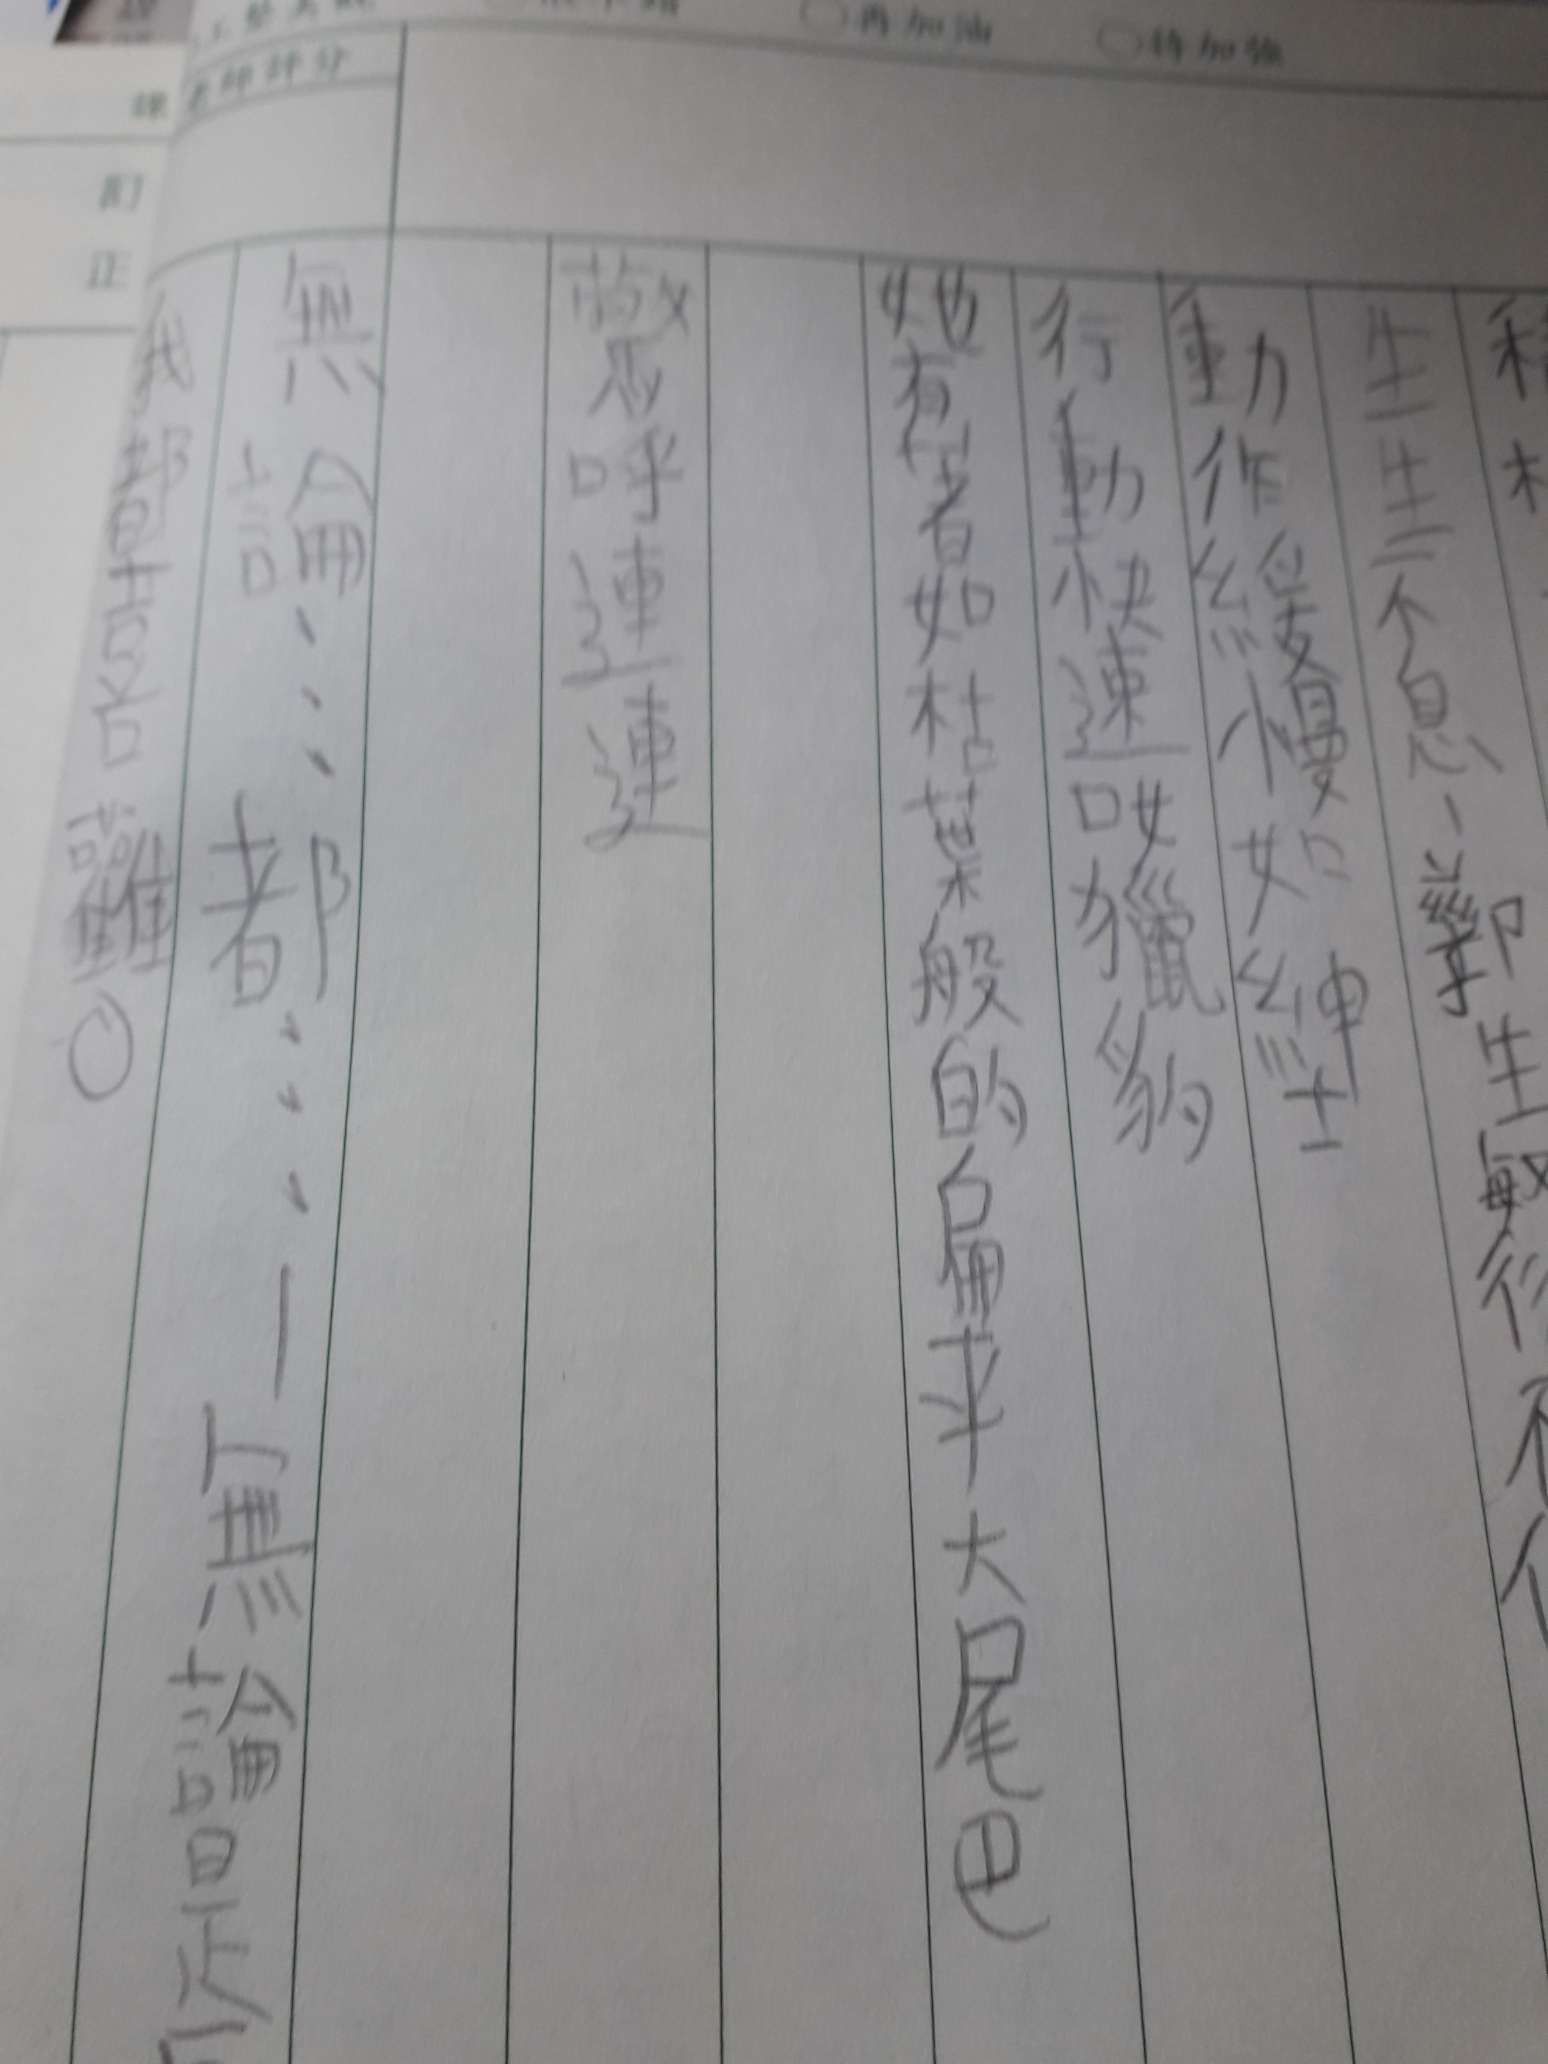 再加油 待加強
老師評分
生生不息、孳生繁衍不
動作緩慢如紳士
行動快速啖獵豹
她有著如枯葉般的扁平大尾巴
驚呼連連
無論……都……—無論是
我都喜
訂正